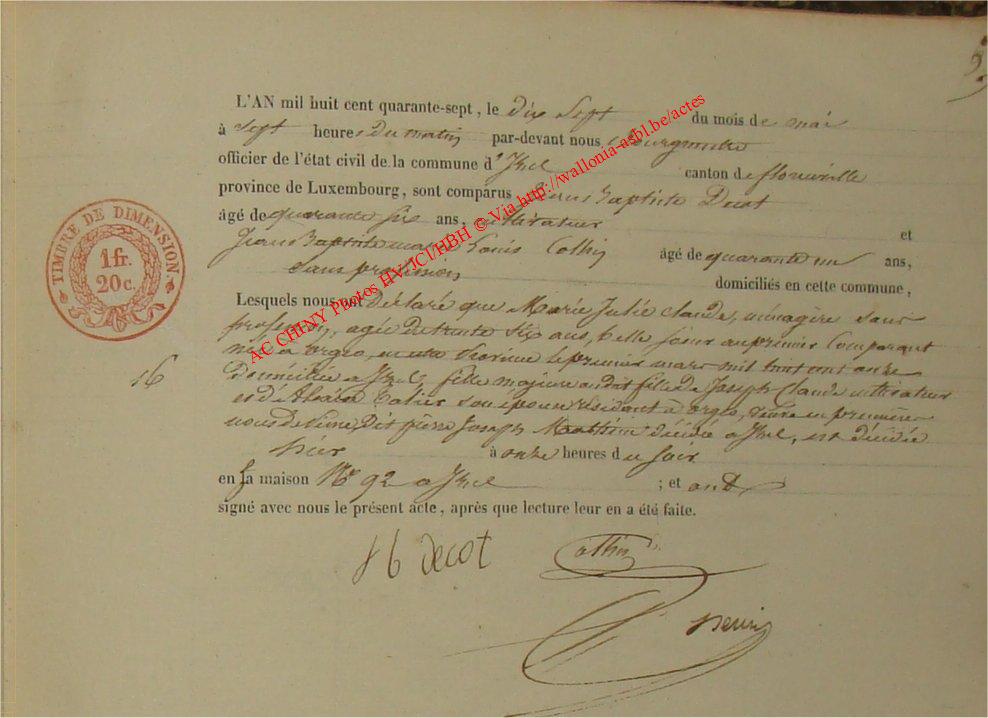 L'AN mil huit cent quarante-sept, le dix Sept du mois de mai
à Sept heures du matin par-devant nous Bourgmestre
officier de l'état civil de la commune d'Izel canton de florenville
province de Luxembourg, sont comparus Jean Baptiste Decot
âgé de quarante six ans, cultivateur et
Jean Baptiste marie Louis Collin âgé de quarante un ans,
Sans profession domiciliés en cette commune,
Lesquels nous ont déclaré que Marie Julie Claude, menagère sans
profession, agée de trente Six ans, belle soeur au premier Comparant
née a orgeo, le premier mars mil huit cent onze
Domiciliée a Izel, fille majeure de Joseph Claude cultivateur
et de son épouse residant à orgeo, veuve en première
noces de pierre Joseph décédé a Izel, est décédée
hier à onze heures du soir
en sa maison No 92 a Izel ; et ont
signé avec nous le présent acte, après que lecture leur en a été faite.
16
TIMBRE DE DIMENSION.
1 fr.
20 c.
AC CHINY Photos HV/ICI/HBH © Via http://wallonia-asbl.be/actes
J b decot
Collin